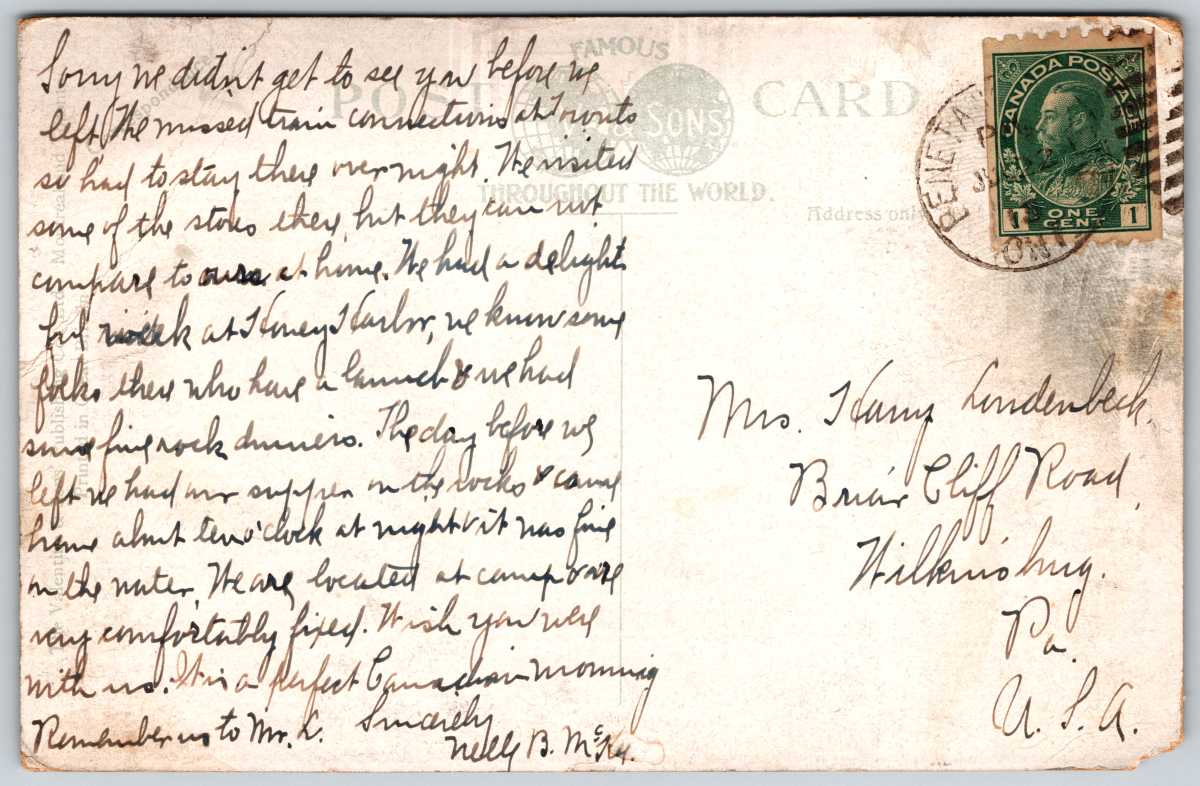 Sorry we didn't get to see you before we
left. We missed train connections at Toronto
so had to stay there over night. We visited
some of the stores there, but they can not
compare to ours at home. We had a delight
ful week at Honey Harbor, we know some
folks there who have a launch & we had
some fine rock dinners. The day before we
left we had our supper on the rocks & came
home about ten o'clock at night & it was fine
on the water. We are located at camp & are
very comfortably fixed. Wish you were
with us. It is a perfect Canadian morning
Remember us to Mr. L. Sincerely
Nelly B. McKy.
FAMOUS
POST CARD
& SONS
THROUGHOUT THE WORLD.
Address only
PENETA
ONT
CANADA POSTAGE
1 ONE CENT 1
Mrs. Harry Loudenbeck.
Briar Cliff Road,
Wilkinsburg.
Pa.
U. S. A.